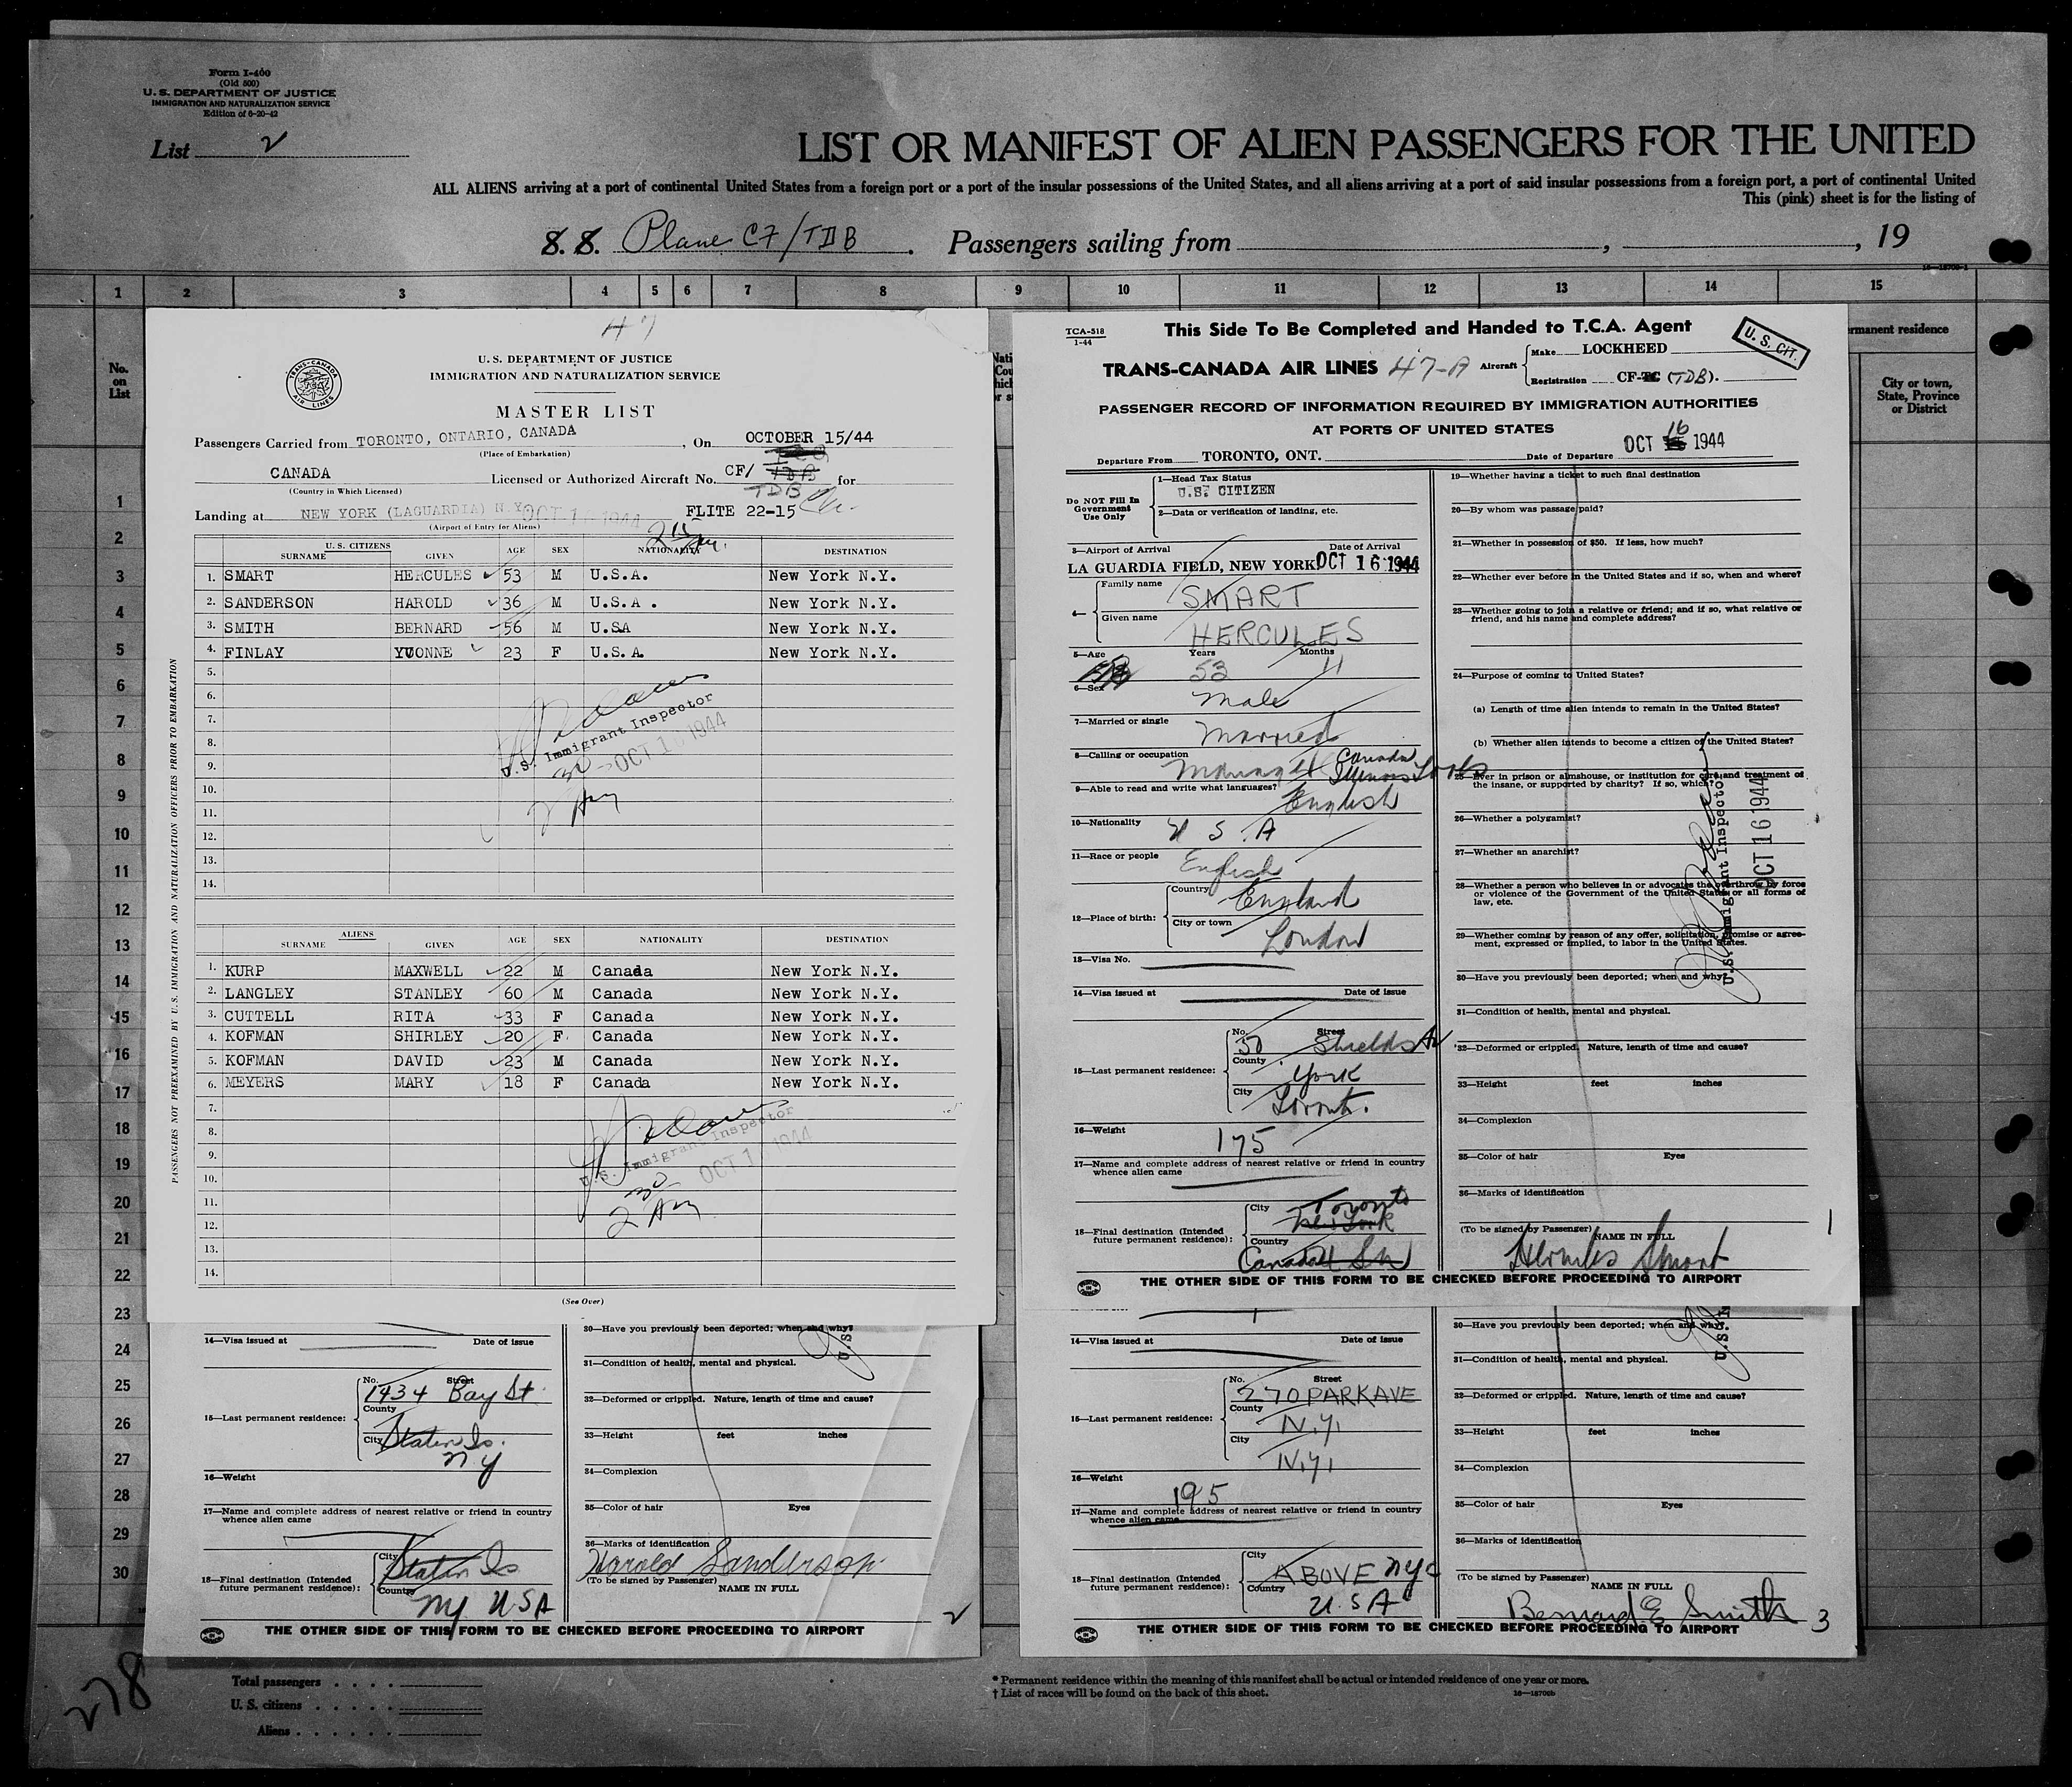 Form I-400
(Old 500)
U. S. DEPARTMENT OF JUSTICE
IMMIGRATION AND NATURALIZATION SERVICE
Edition of 6-20-42
List 2
LIST OR MANIFEST OF ALIEN PASSENGERS FOR THE UNITED
ALL ALIENS arriving at a port of continental United States from a foreign port or a port of the insular possessions of the United States, and all aliens arriving at a port of said insular possessions from a foreign port, a port of continental United
This (pink) sheet is for the listing of
S. S. Plane CF/TDB. Passengers sailing from , , 19
1 2 3 4 5 6 7 8 9 10 11 12 13 14 15
No.
on
List
1
2
3
4
5
6
7
8
9
10
11
12
13
14
15
16
17
18
19
20
21
22
23
24
25
26
27
28
29
30
rmanent residence
City or town,
State, Province
or District
47
TRANS-CANADA AIR LINES
U. S. DEPARTMENT OF JUSTICE
IMMIGRATION AND NATURALIZATION SERVICE
MASTER LIST
Passengers Carried from TORONTO, ONTARIO, CANADA, On OCTOBER 15/44
(Place of Embarkation)
CANADA Licensed or Authorized Aircraft No. CF/ TDB for
(Country in Which Licensed)
Landing at NEW YORK (LAGUARDIA) N.Y. FLITE 22-15
(Airport of Entry for Aliens)
PASSENGERS NOT PREEXAMINED BY U.S. IMMIGRATION AND NATURALIZATION OFFICERS PRIOR TO EMBARKATION
U. S. CITIZENS
SURNAME GIVEN AGE SEX NATIONALITY DESTINATION
1. SMART HERCULES 53 M U.S.A. New York N.Y.
2. SANDERSON HAROLD 36 M U.S.A . New York N.Y.
3. SMITH BERNARD 56 M U.SA New York N.Y.
4. FINLAY YVONNE 23 F U.S.A. New York N.Y.
5.
6.
7.
8.
9.
10.
11.
12.
13.
14.
U.S. Immigrant Inspector
OCT 16 1944
2 30 AM
ALIENS
SURNAME GIVEN AGE SEX NATIONALITY DESTINATION
1. KURP MAXWELL 22 M Canada New York N.Y.
2. LANGLEY STANLEY 60 M Canada New York N.Y.
3. CUTTELL RITA 33 F Canada New York N.Y.
4. KOFMAN SHIRLEY 20 F. Canada New York N.Y.
5. KOFMAN DAVID 23 M Canada New York N.Y.
6. MEYERS MARY 18 F Canada New York N.Y.
7.
8.
9.
10.
11.
12.
13.
14.
U.S. Immigrant Inspector
OCT 1 1944
2 30 AM
(See Over)
TCA-518
1-44
This Side To Be Completed and Handed to T.C.A. Agent
U. S. CIT.
TRANS-CANADA AIR LINES 47-A Aircraft Make LOCKHEED
Registration CF-TC (TDB).
PASSENGER RECORD OF INFORMATION REQUIRED BY IMMIGRATION AUTHORITIES
AT PORTS OF UNITED STATES
Departure From TORONTO, ONT. Date of Departure OCT 16 1944
Do NOT Fill In
Government
Use Only
1—Head Tax Status
U.S. CITIZEN
2—Data or verification of landing, etc.
3—Airport of Arrival Date of Arrival
LA GUARDIA FIELD, NEW YORK OCT 16 1944
4— Family name SMART
Given name HERCULES
5—Age Years 53 Months 11
6—Sex Male
7—Married or single Married
8—Calling or occupation Canada Illinois Tools
9—Able to read and write what languages? English
10—Nationality U S A
11—Race or people English
12—Place of birth: Country England
City or town London
13—Visa No.
14—Visa issued at Date of issue
15—Last permanent residence: No. 50 Street Shields Av
County York
City Toronto.
16—Weight 175
17—Name and complete address of nearest relative or friend in country
whence alien came
18—Final destination (Intended
future permanent residence): City Toronto
Country Canada
19—Whether having a ticket to such final destination
20—By whom was passage paid?
21—Whether in possession of $50. If less, how much?
22—Whether ever before in the United States and if so, when and where?
23—Whether going to join a relative or friend; and if so, what relative or
friend, and his name and complete address?
24—Purpose of coming to United States?
(a) Length of time alien intends to remain in the United States?
(b) Whether alien intends to become a citizen of the United States?
25—Ever in prison or almshouse, or institution for care and treatment of
the insane, or supported by charity? If so, which?
26—Whether a polygamist?
27—Whether an anarchist?
28—Whether a person who believes in or advocates the overthrow by force
or violence of the Government of the United States or all forms of
law, etc.
29—Whether coming by reason of any offer, solicitation, promise or agree-
ment, expressed or implied, to labor in the United States.
30—Have you previously been deported; when and why?
31—Condition of health, mental and physical.
32—Deformed or crippled. Nature, length of time and cause?
33—Height feet inches
34—Complexion
35—Color of hair Eyes
36—Marks of identification
(To be signed by Passenger) NAME IN FULL
Hercules Smart
1
U.S. Immigrant Inspector
OCT 16 1944
THE OTHER SIDE OF THIS FORM TO BE CHECKED BEFORE PROCEEDING TO AIRPORT
14—Visa issued at Date of issue
15—Last permanent residence: No. 1434 Street Bay St.
County
City Staten Is.
NY
16—Weight
17—Name and complete address of nearest relative or friend in country
whence alien came
18—Final destination (Intended
future permanent residence): City Staten Is
Country NY USA
30—Have you previously been deported; when and why?
31—Condition of health, mental and physical.
32—Deformed or crippled. Nature, length of time and cause?
33—Height feet inches
34—Complexion
35—Color of hair Eyes
36—Marks of identification
Harold Sanderson
(To be signed by Passenger) NAME IN FULL
2
THE OTHER SIDE OF THIS FORM TO BE CHECKED BEFORE PROCEEDING TO AIRPORT
14—Visa issued at Date of issue
15—Last permanent residence: No. 270 Street PARK AVE
County N.Y.
City N.Y.
16—Weight 195
17—Name and complete address of nearest relative or friend in country
whence alien came
18—Final destination (Intended
future permanent residence): City ABOVE NYC
Country U.S A
30—Have you previously been deported; when and why?
31—Condition of health, mental and physical.
32—Deformed or crippled. Nature, length of time and cause?
33—Height feet inches
34—Complexion
35—Color of hair Eyes
36—Marks of identification
(To be signed by Passenger) NAME IN FULL
Bernard E Smith
3
THE OTHER SIDE OF THIS FORM TO BE CHECKED BEFORE PROCEEDING TO AIRPORT
278
Total passengers . . . .
U. S. citizens . . . . .
Aliens . . . . . .
* Permanent residence within the meaning of this manifest shall be actual or intended residence of one year or more.
† List of races will be found on the back of this sheet.